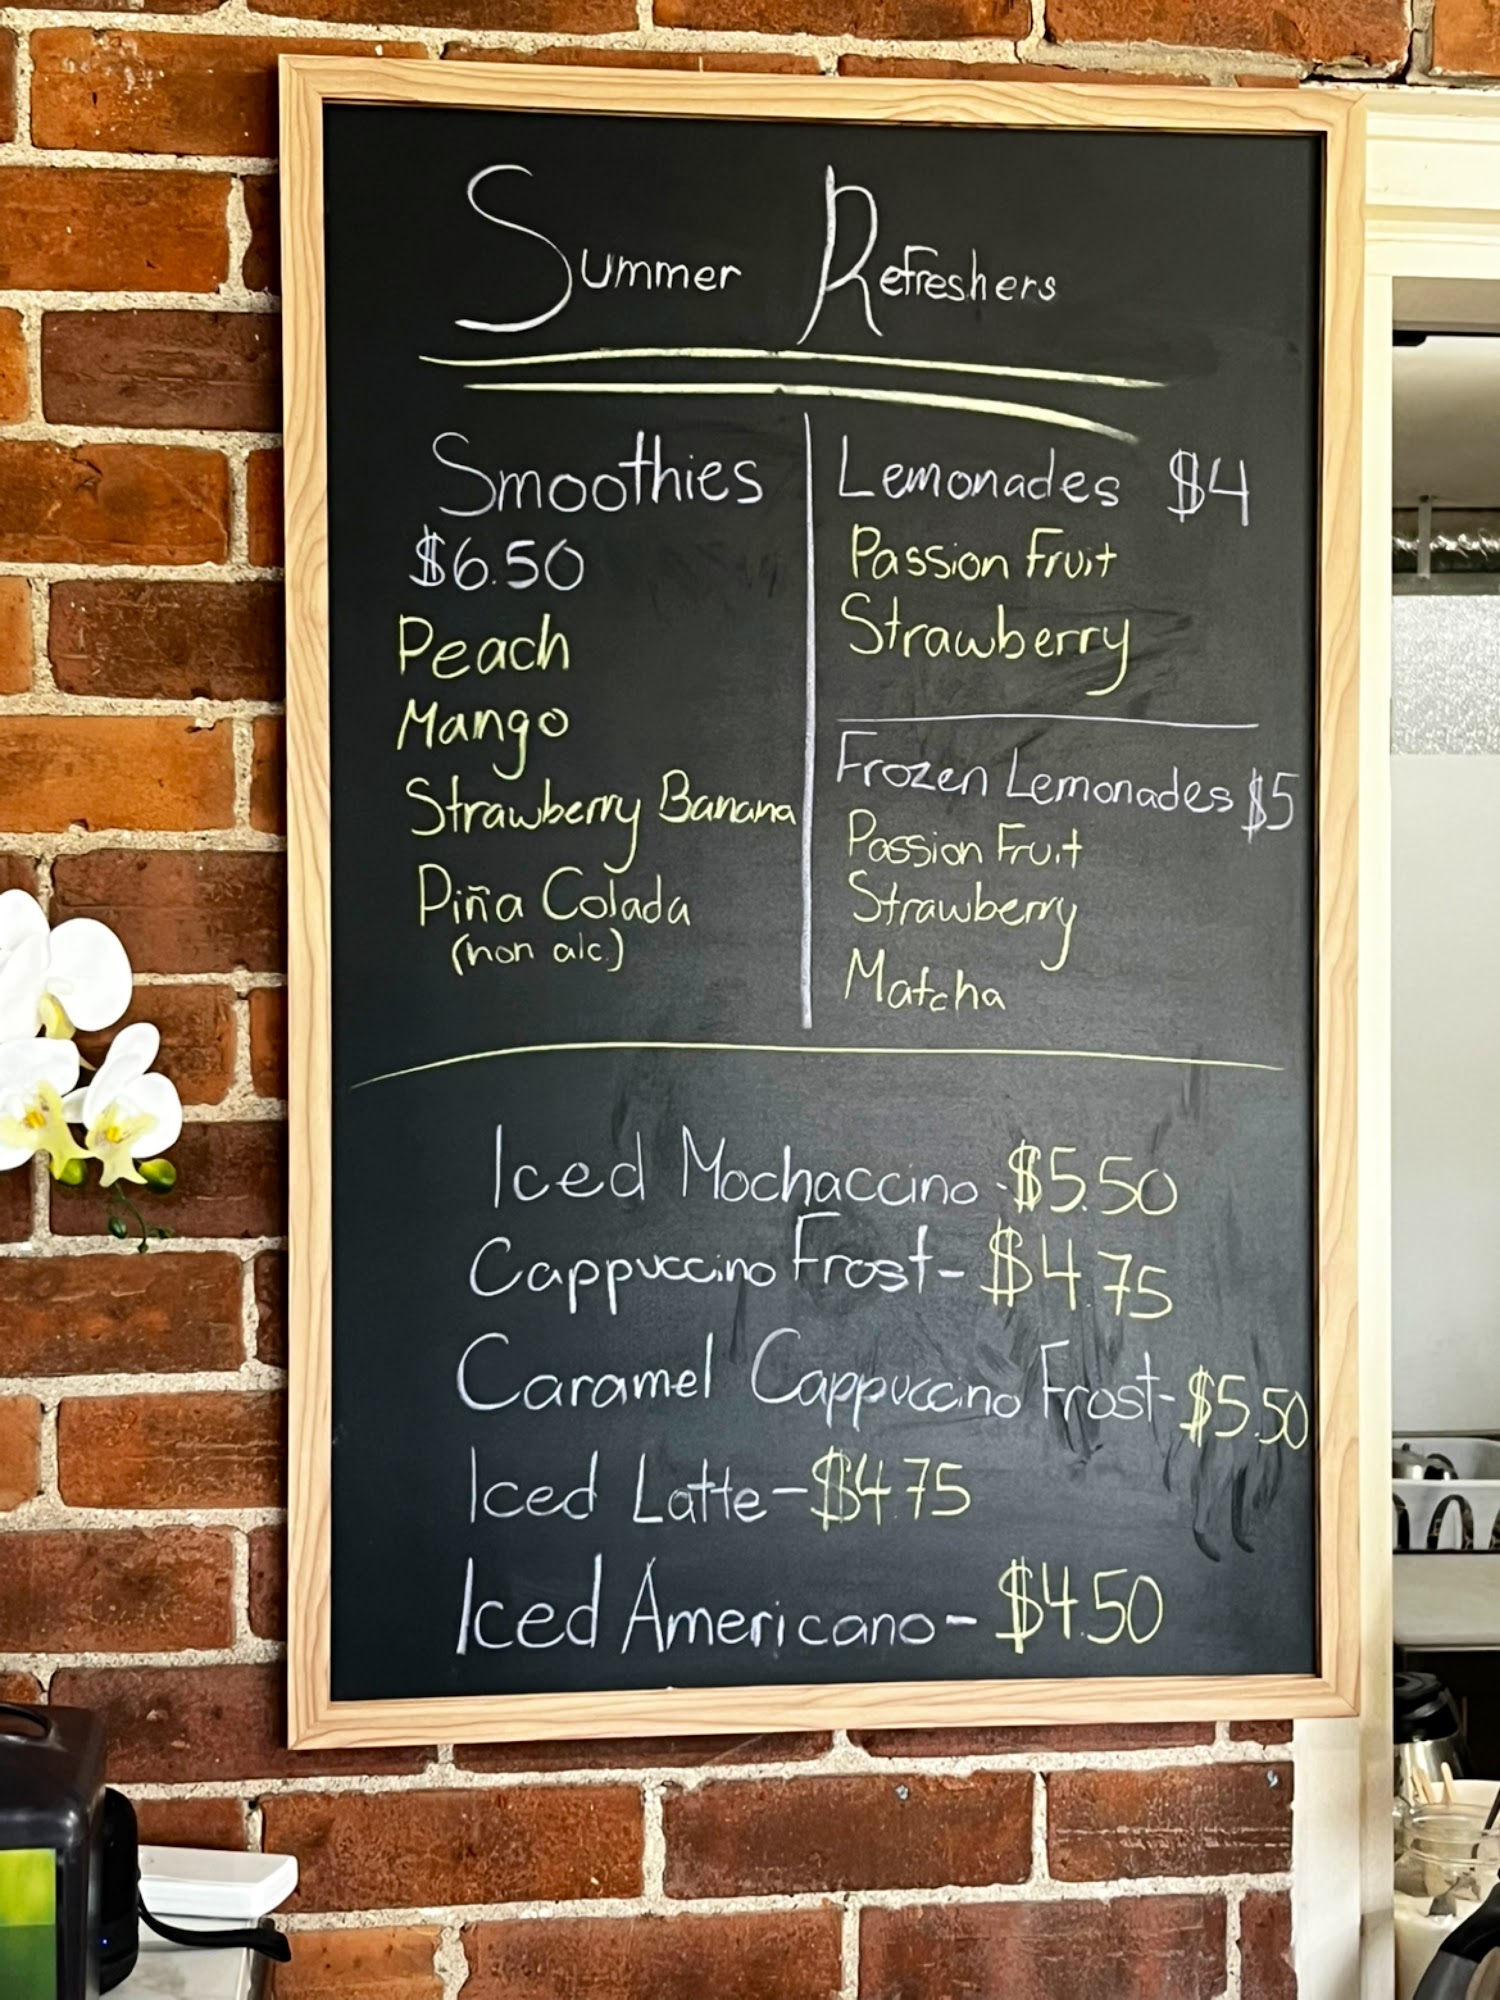 Summer Refreshers
Smoothies
$6.50
Peach
Mango
Strawberry Banana
Piña Colada
(non alc.)
Lemonades $4
Passion Fruit
Strawberry
Frozen Lemonades $5
Passion Fruit
Strawberry
Matcha
Iced Mochaccino - $5.50
Cappuccino Frost - $4.75
Caramel Cappuccino Frost - $5.50
Iced Latte - $4.75
Iced Americano - $4.50